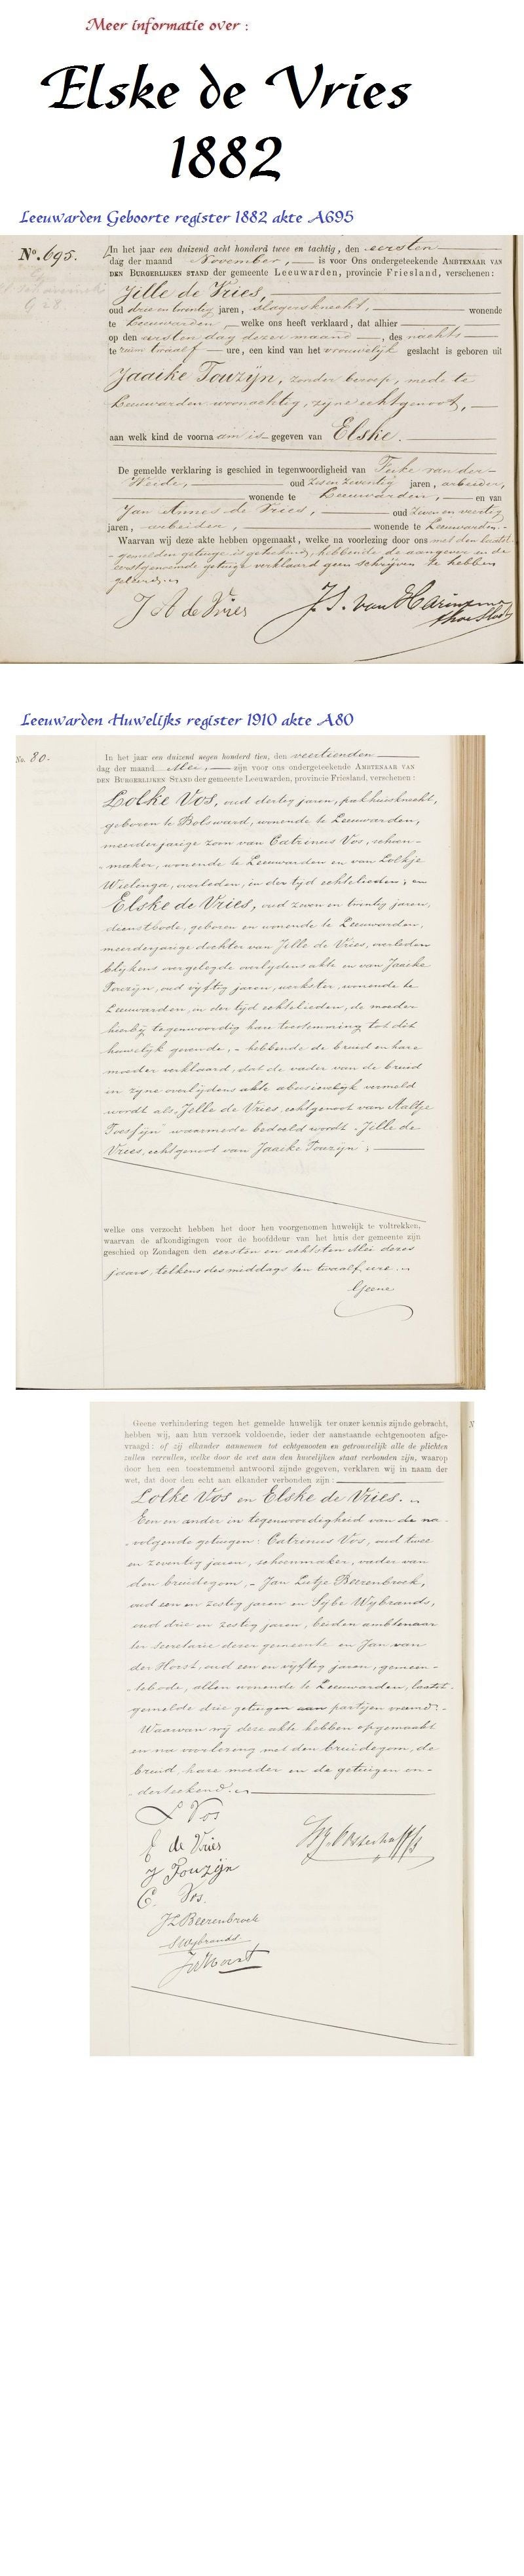 Meer informatie over :
Elske de Vries
1882
Leeuwarden Geboorte register 1882 akte A695
No. 695.
In het jaar een duizend acht honderd twee en tachtig, den eersten
dag der maand November, is voor Ons ondergeteekende AMBTENAAR VAN
DEN BURGERLIJKEN STAND der gemeente Leeuwarden, provincie Friesland, verschenen:
Jille de Vries,
oud drie en twintig jaren, slagersknecht, wonende
te Leeuwarden, welke ons heeft verklaard, dat alhier
op den eersten dag dezer maand, des nachts
te ruim twaalf ure, een kind van het vrouwelijk geslacht is geboren uit
Jaaike Touzijn, zonder beroep, mede te
Leeuwarden woonachtig, zijne echtgenoot,
aan welk kind de voorna am is gegeven van Elske.
De gemelde verklaring is geschied in tegenwoordigheid van Feike van der
Weide, oud zes en zeventig jaren, arbeider,
wonende te Leeuwarden, en van
Jan Annes de Vries, oud zeven en veertig
jaren, arbeider, wonende te Leeuwarden.
Waarvan wij deze akte hebben opgemaakt, welke na voorlezing door ons met den laatst-
gemelden getuige is geteekend, hebbende de aangever en de
eerstgenoemde getuige verklaard geen schrijven te hebben
geleerd.
J A de Vries J. S. van Harinxma
thoe Slooten
Leeuwarden Huwelijks register 1910 akte A80
No. 80.
In het jaar een duizend negen honderd tien, den veertienden
dag der maand Mei, zijn voor ons ondergeteekende AMBTENAAR VAN
DEN BURGERLIJKEN STAND der gemeente Leeuwarden, provincie Friesland, verschenen:
Lolke Vos, oud dertig jaren, pakhuisknecht,
geboren te Bolsward, wonende te Leeuwarden,
meerderjarige zoon van Catrinus Vos, schoen-
maker, wonende te Leeuwarden en van Loltje
Wielenga, overleden, in der tijd echtelieden, en
Elske de Vries, oud zeven en twintig jaren,
dienstbode, geboren en wonende te Leeuwarden,
meerderjarige dochter van Jelle de Vries, overleden
blijkens overgelegde overlijdens akte en van Jaaike
Touzijn, oud vijftig jaren, werkster, wonende te
Leeuwarden, in der tijd echtelieden, de moeder
hierbij tegenwoordig hare toestemming tot dit
huwelijk gevende, - hebbende de bruid en hare
moeder verklaard, dat de vader van de bruid
in zijne overlijdens akte abusievelijk vermeld
wordt als „Jelle de Vries, echtgenoot van Aaltje
Toesijn" waarmede bedoeld wordt „Jille de
Vries, echtgenoot van Jaaike Touzijn";
welke ons verzocht hebben het door hen voorgenomen huwelijk te voltrekken,
waarvan de afkondigingen voor de hoofddeur van het huis der gemeente zijn
geschied op Zondagen den eersten en achtsten Mei dezes
jaars, telkens des middags ten twaalf ure.
Geene
Geene verhindering tegen het gemelde huwelijk ter onzer kennis zijnde gebracht,
hebben wij, aan hun verzoek voldoende, ieder der aanstaande echtgenooten afge-
vraagd: of zij elkander aannemen tot echtgenooten en getrouwelijk alle de plichten
zullen vervullen, welke door de wet aan den huwelijken staat verbonden zijn, waarop
door hen een toestemmend antwoord zijnde gegeven, verklaren wij in naam der
wet, dat door den echt aan elkander verbonden zijn:
Lolke Vos en Elske de Vries.
Een en ander in tegenwoordigheid van de na-
volgende getuigen: Catrinus Vos, oud twee
en zeventig jaren, schoenmaker, vader van
den bruidegom, - Jan Lutje Beerenbroek,
oud een en zestig jaren en Sybe Wybrands,
oud drie en zestig jaren, beiden ambtenaar
ter secretarie dezer gemeente en Jan van
der Horst, oud een en vijftig jaren, gemeen-
tebode, allen wonende te Leeuwarden, laatst-
gemelde drie getuigen aan partijen vreemd.
Waarvan wij deze akte hebben opgemaakt
en na voorlezing met den bruidegom, de
bruid, hare moeder en de getuigen on-
derteekend.
L Vos
E de Vries
J Touzijn
C. Vos.
JL Beerenbroek
S Wybrands